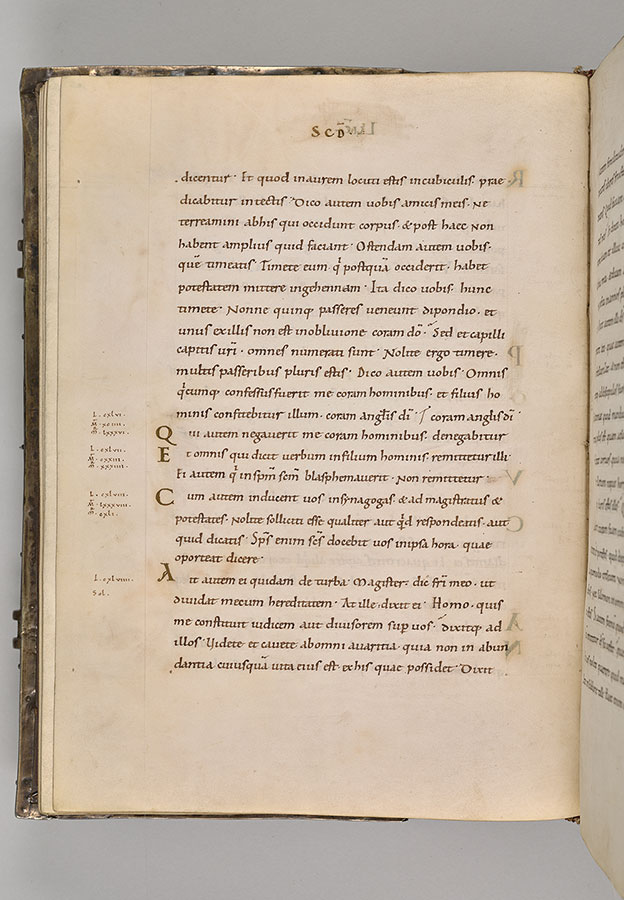 SCD̄
dicentur · Et quod inaurem locuti estis incubiculis · prae
dicabitur intectis · Dico autem uobis amicis meis · Ne
terreamini abhis qui occidunt corpus · & post haec non
habent amplius quid faciant · Ostendam autem uobis ·
quē timeatis · Timete eum · q̇ postquā occiderit · habet
potestatem mittere ingehennam · Ita dico uobis · hunc
timete · Nonne quinq; passeres ueneunt dipondio · et
unus exillis non est inobliuione coram dō · Sed et capilli
capitis urī · omnes numerati sunt · Nolite ergo timere ·
multis passeribus pluris estis · Dico autem uobis · Omnis
q̇cumq; confessus fuerit me coram hominibus · et filius ho
minis confitebitur illum · coram angl̄is dī · coram angl̄is dī ·
L · cxlvi ·
Qui autem negauerit me coram hominibus · denegabitur
L · cxlvii ·
Et omnis qui dicit uerbum infilium hominis · remittetur illi ·
Ei autem q̇ inspm̄ scm̄ blasphemauerit · Non remittetur ·
L · cxlviii ·
Cum autem inducent uos insynagogas · & ad magistratus &
potestates · Nolite solliciti esse qualiter aut q̇d respondeatis · aut
quid dicatis · Sps̄ enim scs̄ docebit uos inipsa hora · quae
oporteat dicere ·
L · cxlviiii ·
Sol ·
Ait autem ei quidam de turba · Magister · dic frī meo · ut
diuidat mecum hereditatem · At ille · dixit ei · Homo · quis
me constituit iudicem aut diuisorem sup uos · dixitq; ad
illos · Uidete et cauete abomni auaritia · quia non in abun
dantia cuiusquā uita eius est · exhis quae possidet · Dixit